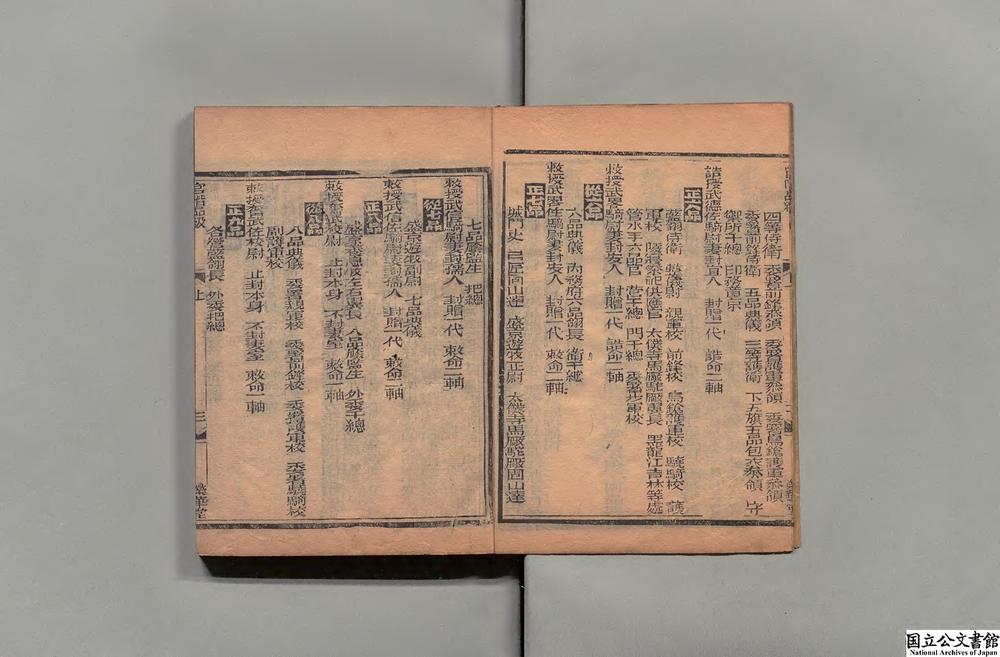 四等侍衛 委署前鋒參領 委署護軍參領 委署鳥鎗護軍參領
委署前鋒侍衛 五品典儀 三等護衛 下五旗五品包衣參領 守
御所千總 印務章京
誥授武德佐騎尉妻封宜人 封贈一代 誥命二軸
正六品
藍翎侍衛 整儀尉 親軍校 前鋒校 鳥鎗護軍校 驍騎校 護
軍校 陵寢祭祀供應官 太僕寺馬廠駝廠章長 黑龍江吉林等處
管水手六品官 營千總 門千總 委署步軍校
敕授武畧騎尉妻封安人 封贈一代 誥命二軸
從六品
六品典儀 內務府六品翎長 衛千總
敕授武畧佐騎尉妻封安人 封贈一代 敕命二軸
正七品
城門史 盛京游牧正尉 太僕寺馬廠駝廠固山達
三
榮華堂
七品廕監生 把總
敕授武信騎尉妻封孺人 封贈一代 敕命二軸
從七品
盛京遊牧副尉 七品典儀
敕授武信佐騎尉妻封孺人 封贈一代 敕命二軸
正八品
盛京 左右翼長 八品廕監生 外委千總
敕授奮武校尉 止封本身 不封妻室 敕命一軸
從八品
八品典儀 委署親軍校 委署前鋒校 委署護軍校 委署驍騎校
副護軍校
敕授奮武佐校尉 止封本身 不封妻室 敕命一軸
正九品
各營藍翎長 外委把總
官階品級
上
三
榮華堂
国立公文書館
National Archives of Japan